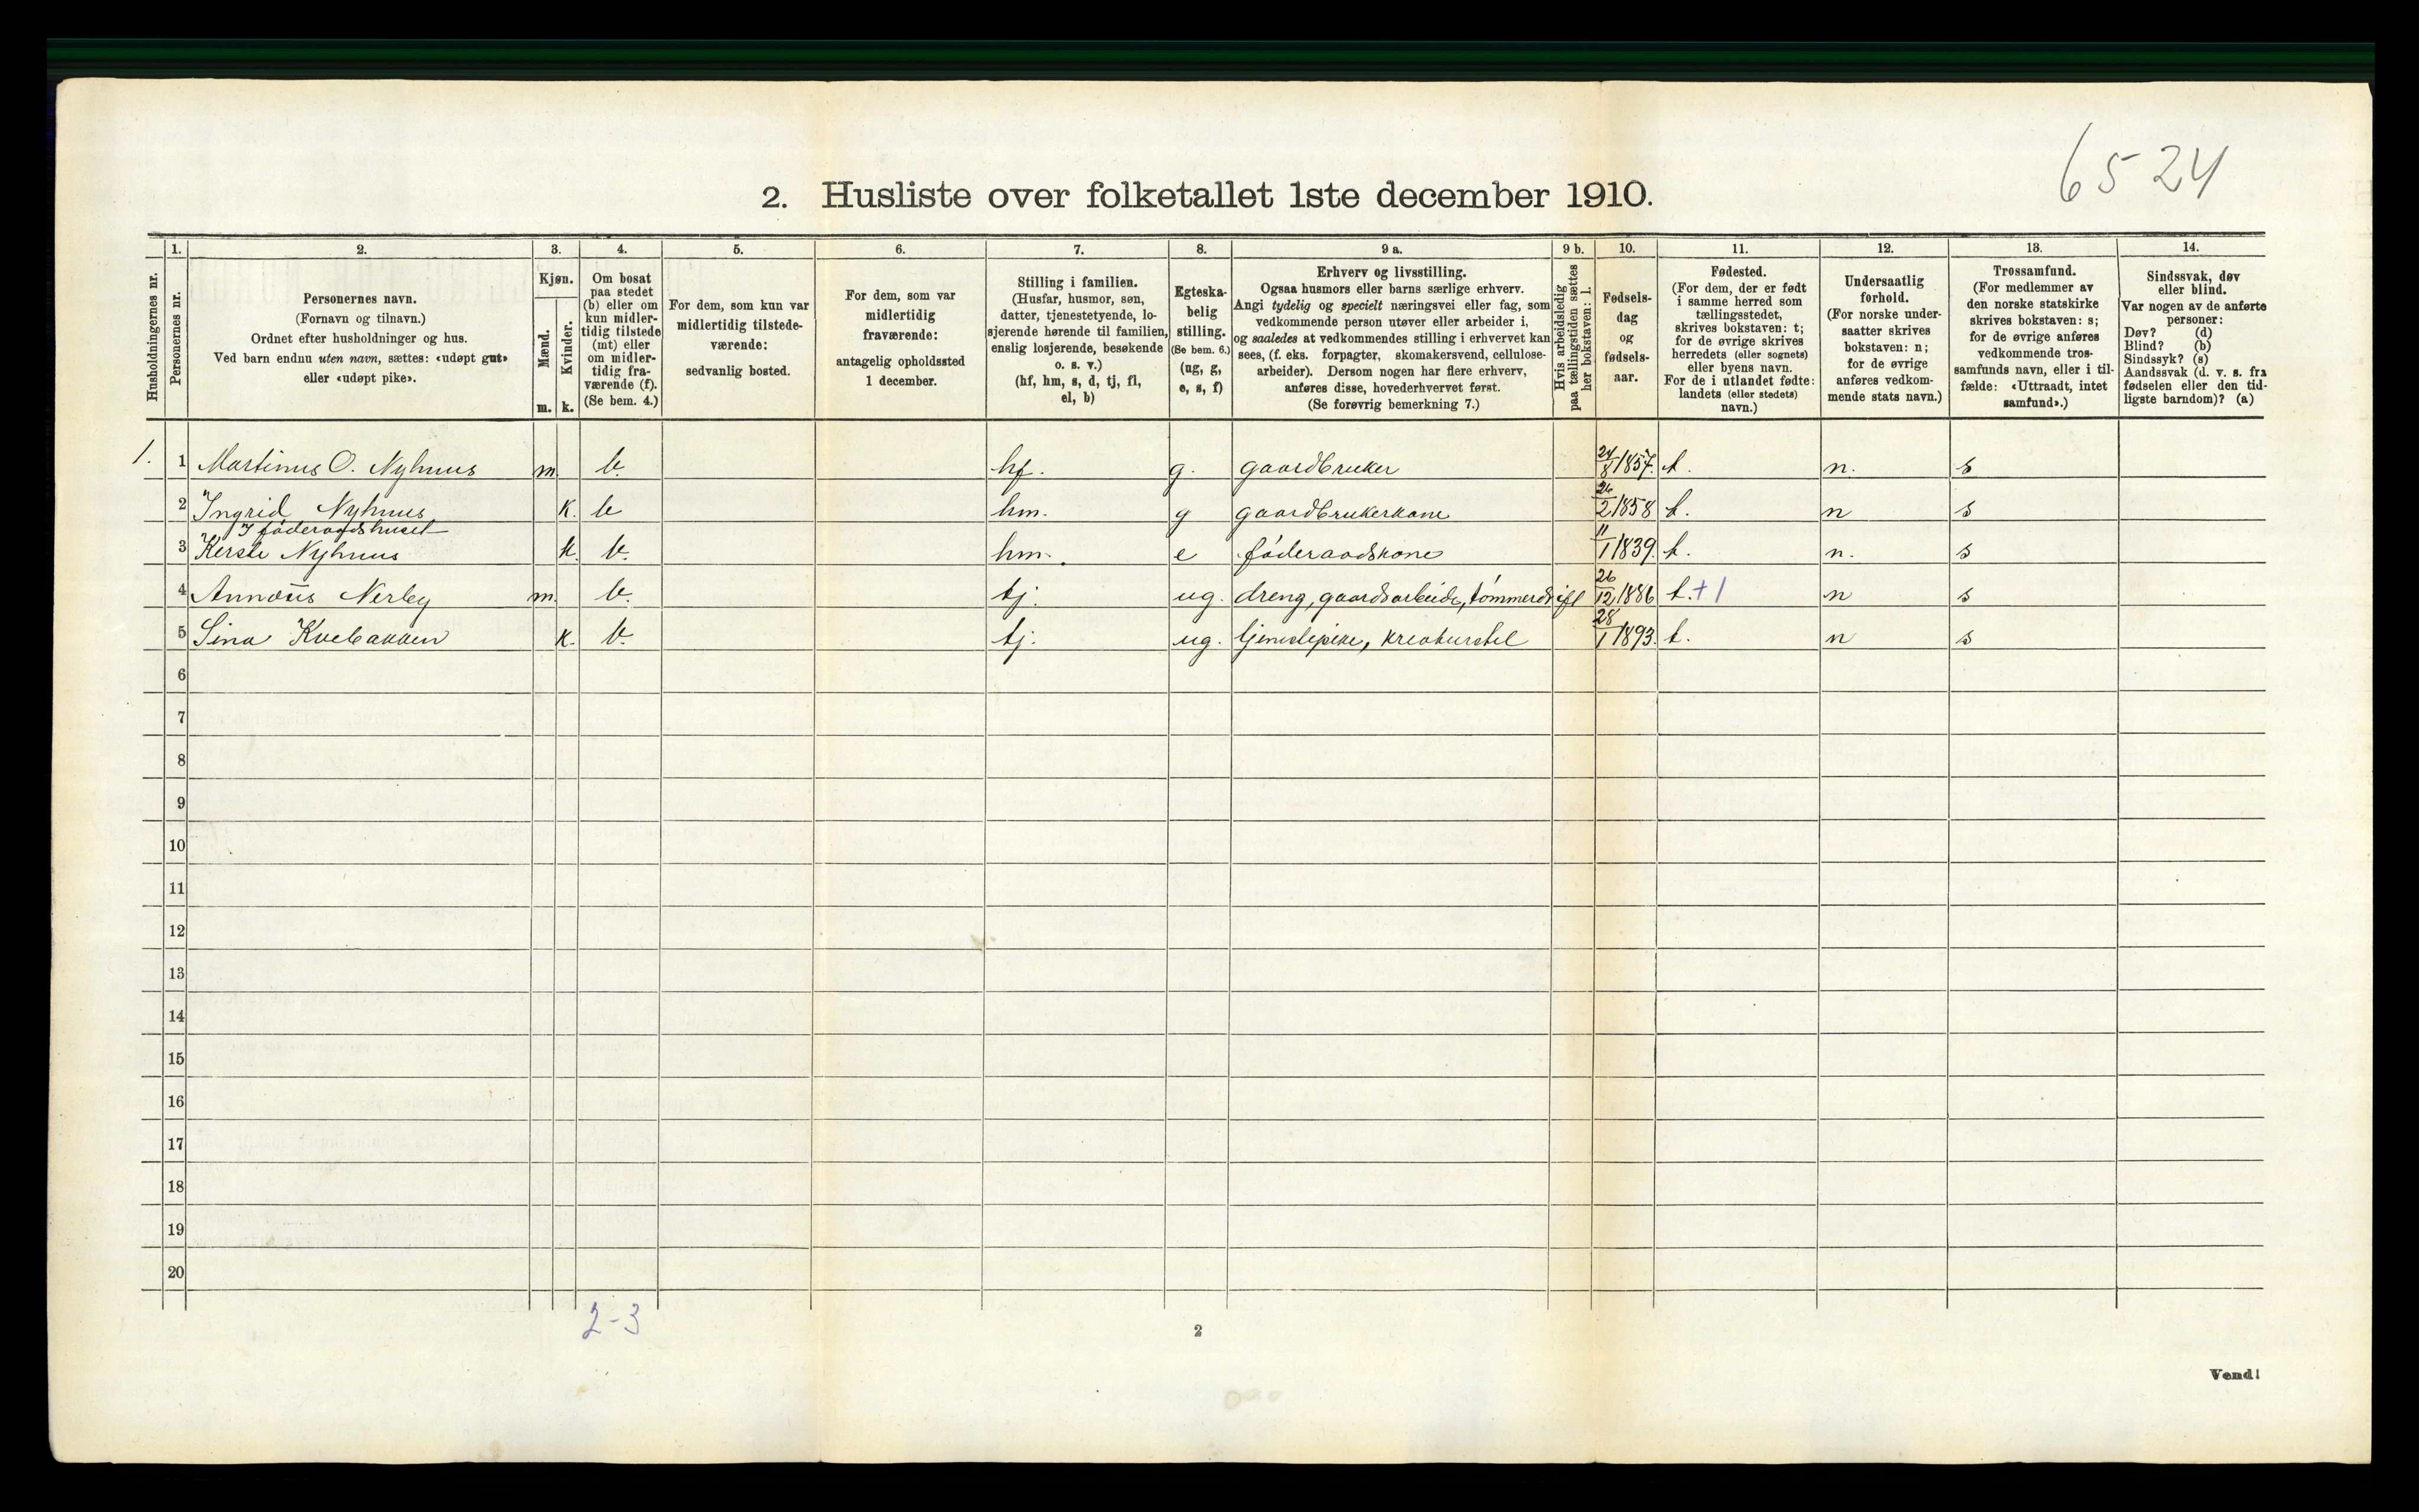 6524
2. Husliste over folketallet 1ste december 1910.
Husholdningernes nr.
1. Personernes nr.
2. Personernes navn.
(Fornavn og tilnavn.)
Ordnet efter husholdninger og hus.
Ved barn endnu uten navn, sættes: «udøpt gut»
eller «udøpt pike».
3. Kjøn.
Mænd. m.
Kvinder. k.
4. Om bosat
paa stedet
(b) eller om
kun midler-
tidig tilstede
(mt) eller
om midler-
tidig fra-
værende (f).
(Se bem. 4.)
5. For dem, som kun var
midlertidig tilstede-
værende:
sedvanlig bosted.
6. For dem, som var
midlertidig
fraværende:
antagelig opholdssted
1 december.
7. Stilling i familien.
(Husfar, husmor, søn,
datter, tjenestetyende, lo-
sjerende hørende til familien,
enslig losjerende, besøkende
o. s. v.)
(hf, hm, s, d, tj, fl,
el, b)
8. Egteska-
belig
stilling.
(Se bem. 6.)
(ug, g,
e, s, f)
9 a. Erhverv og livsstilling.
Ogsaa husmors eller barns særlige erhverv.
Angi tydelig og specielt næringsvei eller fag, som
vedkommende person utøver eller arbeider i,
og saaledes at vedkommendes stilling i erhvervet kan
sees, (f. eks. forpagter, skomakersvend, cellulose-
arbeider). Dersom nogen har flere erhverv,
anføres disse, hovederhvervet først.
(Se forøvrig bemerkning 7.)
9 b. Hvis arbeidsledig
paa tællingstiden sættes
her bokstaven: l.
10. Fødsels-
dag
og
fødsels-
aar.
11. Fødested.
(For dem, der er født
i samme herred som
tællingsstedet,
skrives bokstaven: t;
for de øvrige skrives
herredets (eller sognets)
eller byens navn.
For de i utlandet fødte:
landets (eller stedets)
navn.)
12. Undersaatlig
forhold.
(For norske under-
saatter skrives
bokstaven: n;
for de øvrige
anføres vedkom-
mende stats navn.)
13. Trossamfund.
(For medlemmer av
den norske statskirke
skrives bokstaven: s;
for de øvrige anføres
vedkommende tros-
samfunds navn, eller i til-
fælde: «Uttraadt, intet
samfund».)
14. Sindssvak, døv
eller blind.
Var nogen av de anførte
personer:
Døv? (d)
Blind? (b)
Sindssyk? (s)
Aandssvak (d. v. s. fra
fødselen eller den tid-
ligste barndom)? (a)
1. 1 Martinus O. Nyhuus m. b. hf. g. gaardbruker 24/8 1857. t. n. s
2 Ingrid Nyhuus k. b hm. g gaardbrukerkone 26/2 1858 t. n s
I føderaadshuset
3 Kersti Nyhuus k. b. hm. e føderaadskone 11/1 1839. t. n. s
4 Nerby m. b. tj. ug. dreng, gaardsarbeide, tømmerdrift 26/12 1886 t. +1 n s
5 Sina Kvebakken k. b. tj. ug. tjenestepike, kreaturstel 28/1 1893. t. n s
6
7
8
9
10
11
12
13
14
15
16
17
18
19
20
2-3
2
Vend!